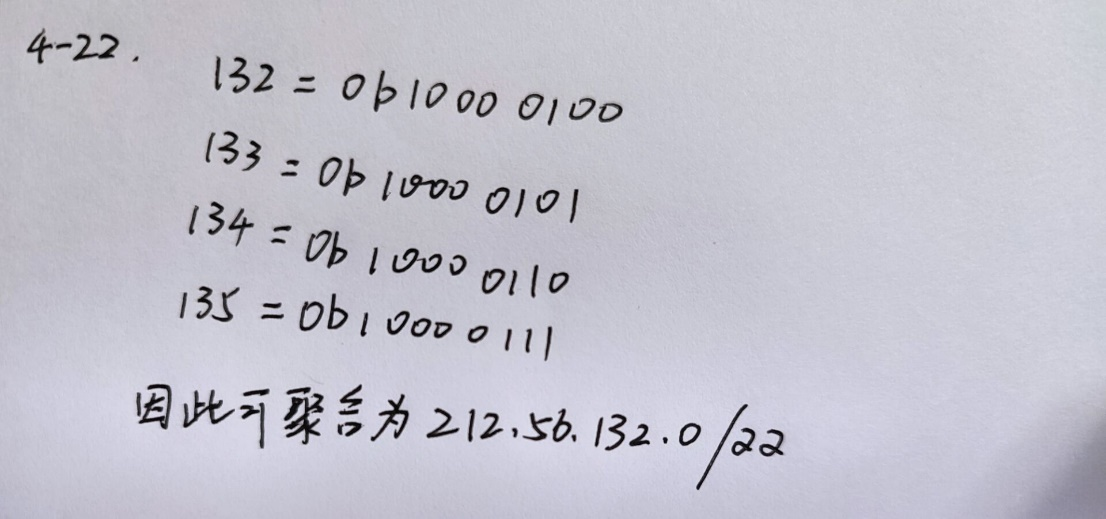 4-22.
132 = 0b1000 0100
133 = 0b1000 0101
134 = 0b1000 0110
135 = 0b1000 0111
因此可聚合为 212.56.132.0/22